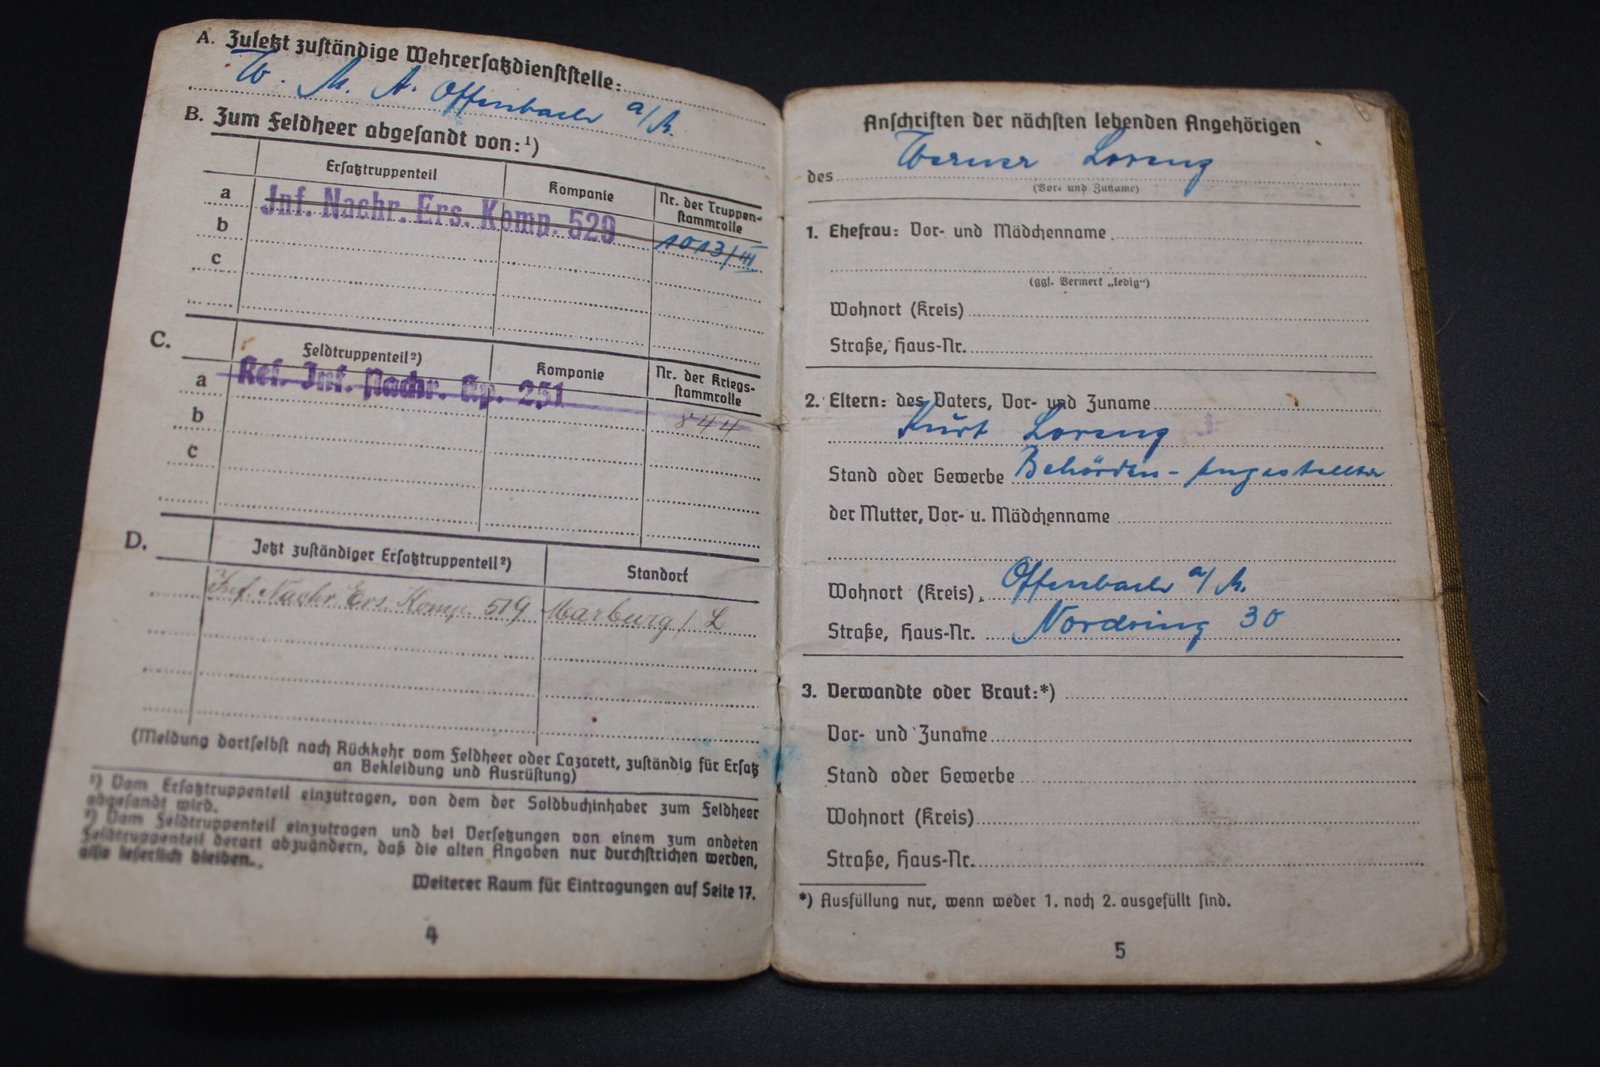 A. Zuletzt zuständige Wehrersatzdienststelle:
W. M. A. Offenbach a/M.
B. Zum Feldheer abgesandt von:¹)
Ersatztruppenteil Kompanie Nr. der Truppen-
stammrolle
a Inf. Nachr. Ers. Komp. 529 1013/III
b
c
C. Feldtruppenteil²) Kompanie Nr. der Kriegs-
stammrolle
a Inf. Nachr. Kp. 251 844
b
c
D. Jetzt zuständiger Ersatztruppenteil²) Standort
Inf. Nachr Ers. Komp. 519 Marburg / L
(Meldung dortselbst nach Rückkehr vom Feldheer oder Lazarett, zuständig für Ersatz
an Bekleidung und Ausrüstung)
¹) Vom Ersatztruppenteil einzutragen, von dem der Soldbuchinhaber zum Feldheer
abgesandt wird.
²) Vom Feldtruppenteil einzutragen und bei Versetzungen von einem zum anderen
Feldtruppenteil derart abzuändern, daß die alten Angaben nur durchstrichen werden,
also leserlich bleiben.
Weiterer Raum für Eintragungen auf Seite 17.
4
Anschriften der nächsten lebenden Angehörigen
des Werner Lorenz
(Vor- und Zuname)
1. Ehefrau: Vor- und Mädchenname
(ggf. Vermerk „ledig“)
Wohnort (Kreis)
Straße, Haus-Nr.
2. Eltern: des Vaters, Vor- und Zuname
Kurt Lorenz
Stand oder Gewerbe Behörden-Angestellter
der Mutter, Vor- u. Mädchenname
Wohnort (Kreis) Offenbach a/M.
Straße, Haus-Nr. Nordring 30
3. Verwandte oder Braut:*)
Vor- und Zuname
Stand oder Gewerbe
Wohnort (Kreis)
Straße, Haus-Nr.
*) Ausfüllung nur, wenn weder 1. noch 2. ausgefüllt sind.
5